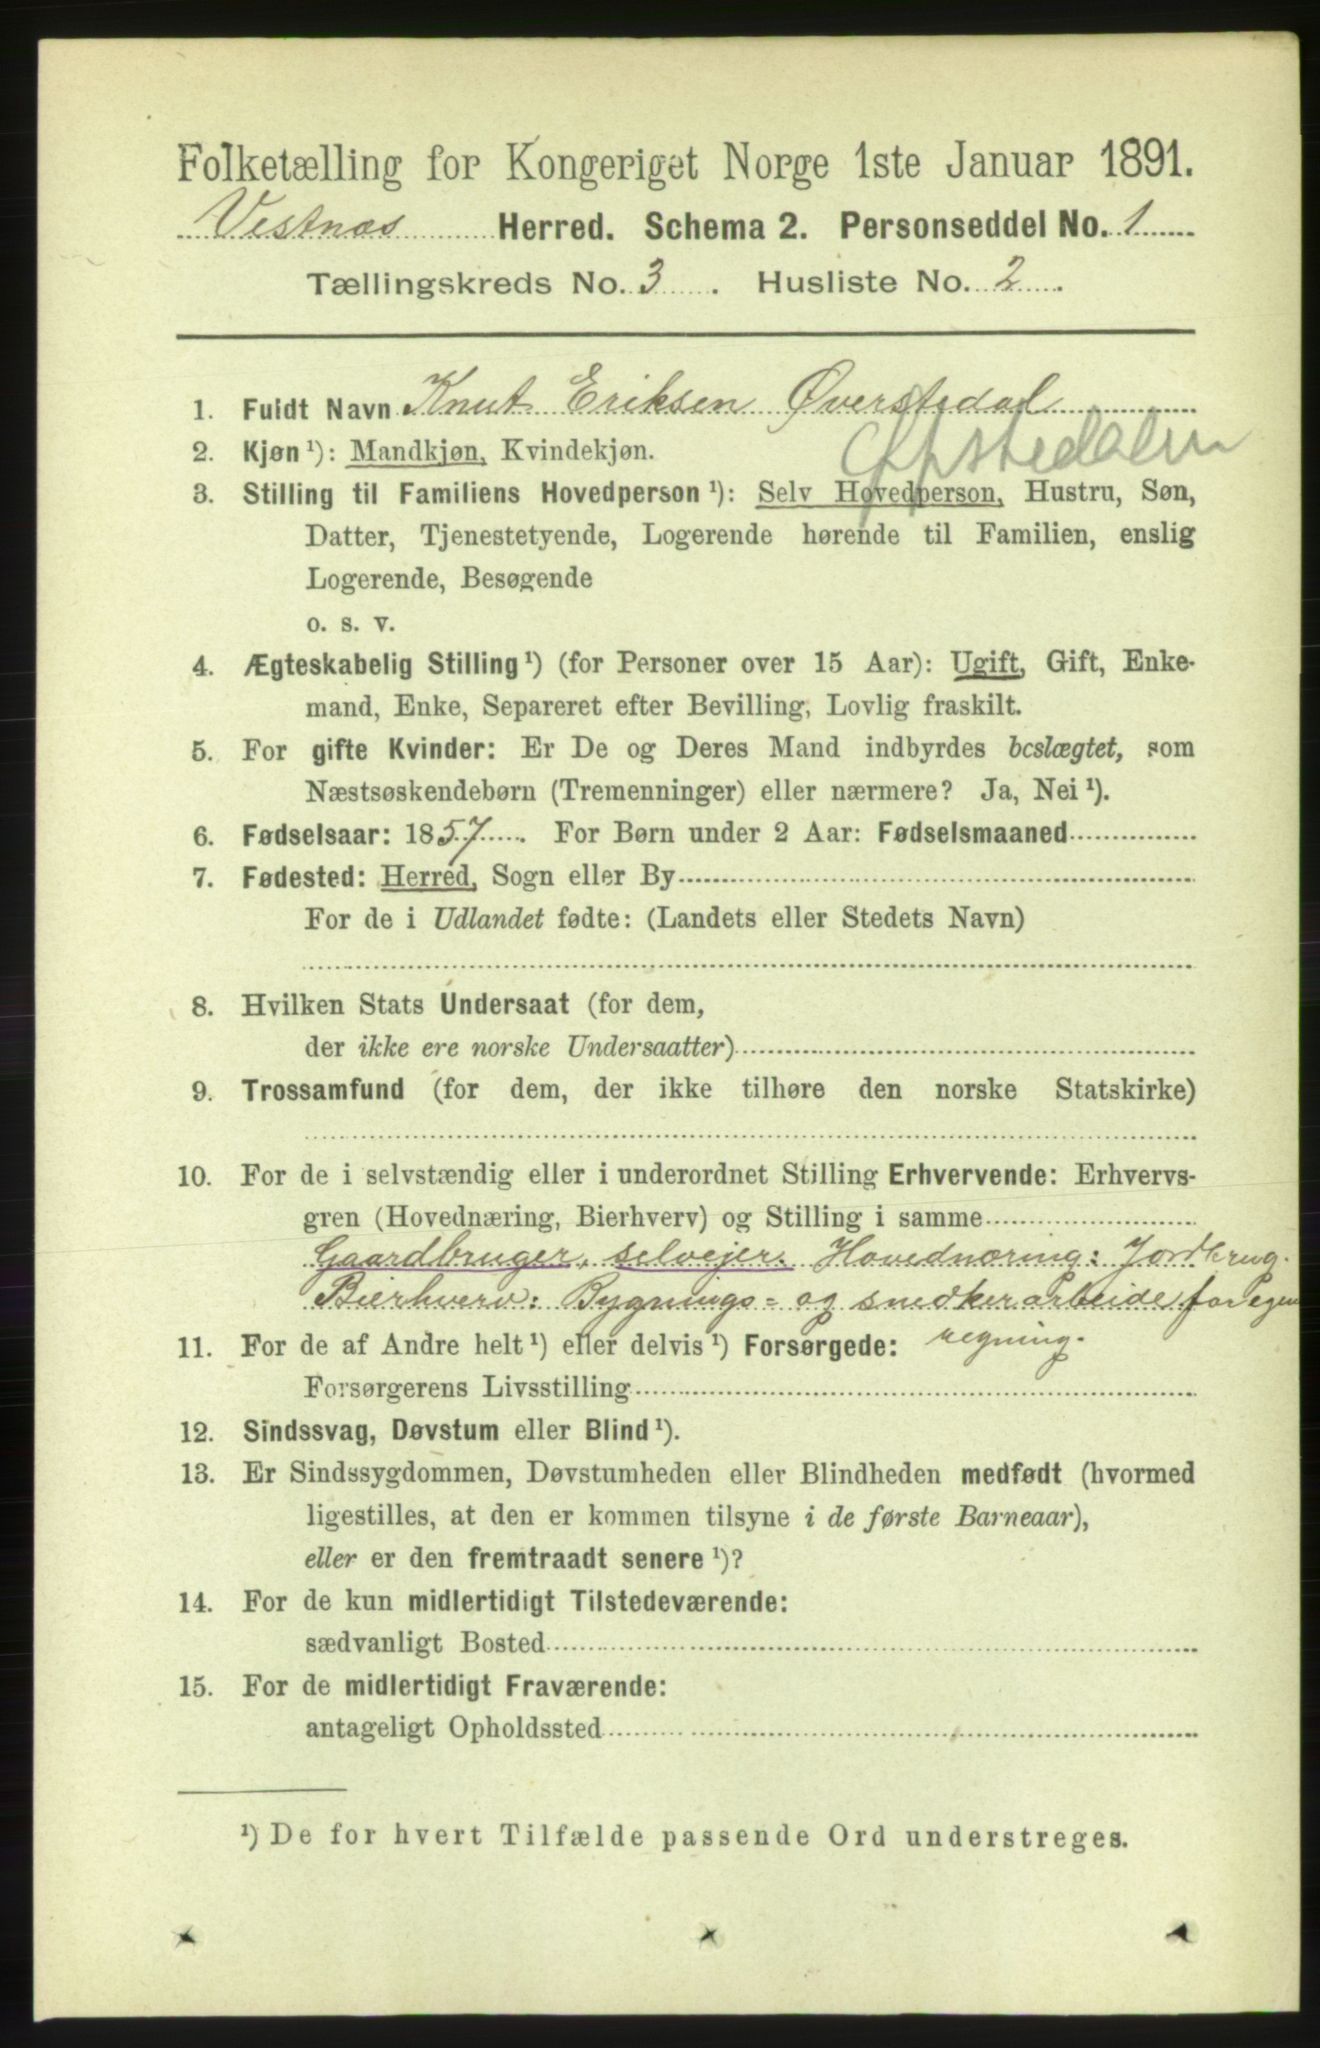 Folketælling for Kongeriget Norge 1ste Januar 1891.
Vestnæs Herred. Schema 2. Personseddel No. 1
Tællingskreds No. 3. Husliste No. 2.
1. Fuldt Navn Knut Eriksen Øverstedal
2. Kjøn ¹): Mandkjøn, Kvindekjøn.
3. Stilling til Familiens Hovedperson ¹): Selv Hovedperson, Hustru, Søn,
Datter, Tjenestetyende, Logerende hørende til Familien, enslig
Logerende, Besøgende
o. s. v.
4. Ægteskabelig Stilling ¹) (for Personer over 15 Aar): Ugift, Gift, Enke-
mand, Enke, Separeret efter Bevilling, Lovlig fraskilt.
5. For gifte Kvinder: Er De og Deres Mand indbyrdes beslægtet, som
Næstsøskendebørn (Tremenninger) eller nærmere? Ja, Nei ¹).
6. Fødselsaar: 1857. For Børn under 2 Aar: Fødselsmaaned
7. Fødested: Herred, Sogn eller By
For de i Udlandet fødte: (Landets eller Stedets Navn)
8. Hvilken Stats Undersaat (for dem,
der ikke ere norske Undersaatter)
9. Trossamfund (for dem, der ikke tilhøre den norske Statskirke)
10. For de i selvstændig eller i underordnet Stilling Erhvervende: Erhvervs-
gren (Hovednæring, Bierhverv) og Stilling i samme
Gaardbruger, selvejer. Hovednæring: Jordbrug.
Bierhverv: Bygnings= og snedkerarbeide for egen
regning.
11. For de af Andre helt ¹) eller delvis ¹) Forsørgede:
Forsørgerens Livsstilling
12. Sindssvag, Døvstum eller Blind ¹).
13. Er Sindssygdommen, Døvstumheden eller Blindheden medfødt (hvormed
ligestilles, at den er kommen tilsyne i de første Barneaar),
eller er den fremtraadt senere ¹)?
14. For de kun midlertidigt Tilstedeværende:
sædvanligt Bosted
15. For de midlertidigt Fraværende:
antageligt Opholdssted
¹) De for hvert Tilfælde passende Ord understreges.